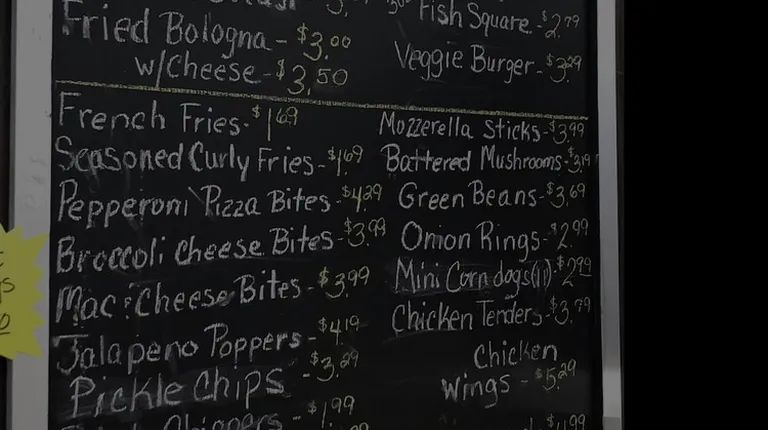 Fried Bologna - $3.00
w/Cheese - $3.50
French Fries - $1.69
Seasoned Curly Fries - $1.69
Pepperoni Pizza Bites - $4.29
Broccoli Cheese Bites - $3.99
Mac & Cheese Bites - $3.99
Jalapeno Poppers - $4.19
Pickle Chips - $3.29
$1.99
Fish Square - $2.79
Veggie Burger - $3.29
Mozzerella Sticks - $3.99
Battered Mushrooms - $3.19
Green Beans - $3.69
Onion Rings - $2.99
Mini Corndogs (11) - $2.99
Chicken Tenders - $3.79
Chicken
Wings - $5.29